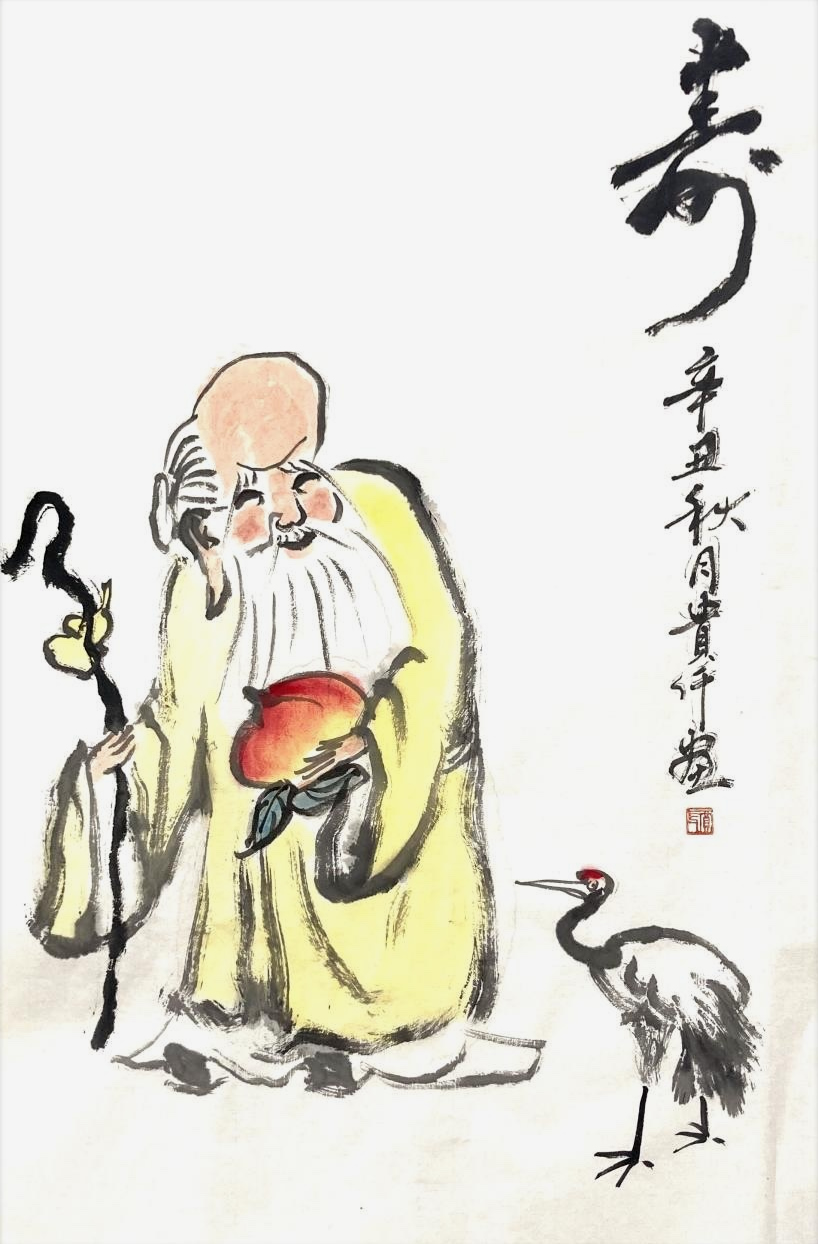 寿
辛丑秋月貴仟畫